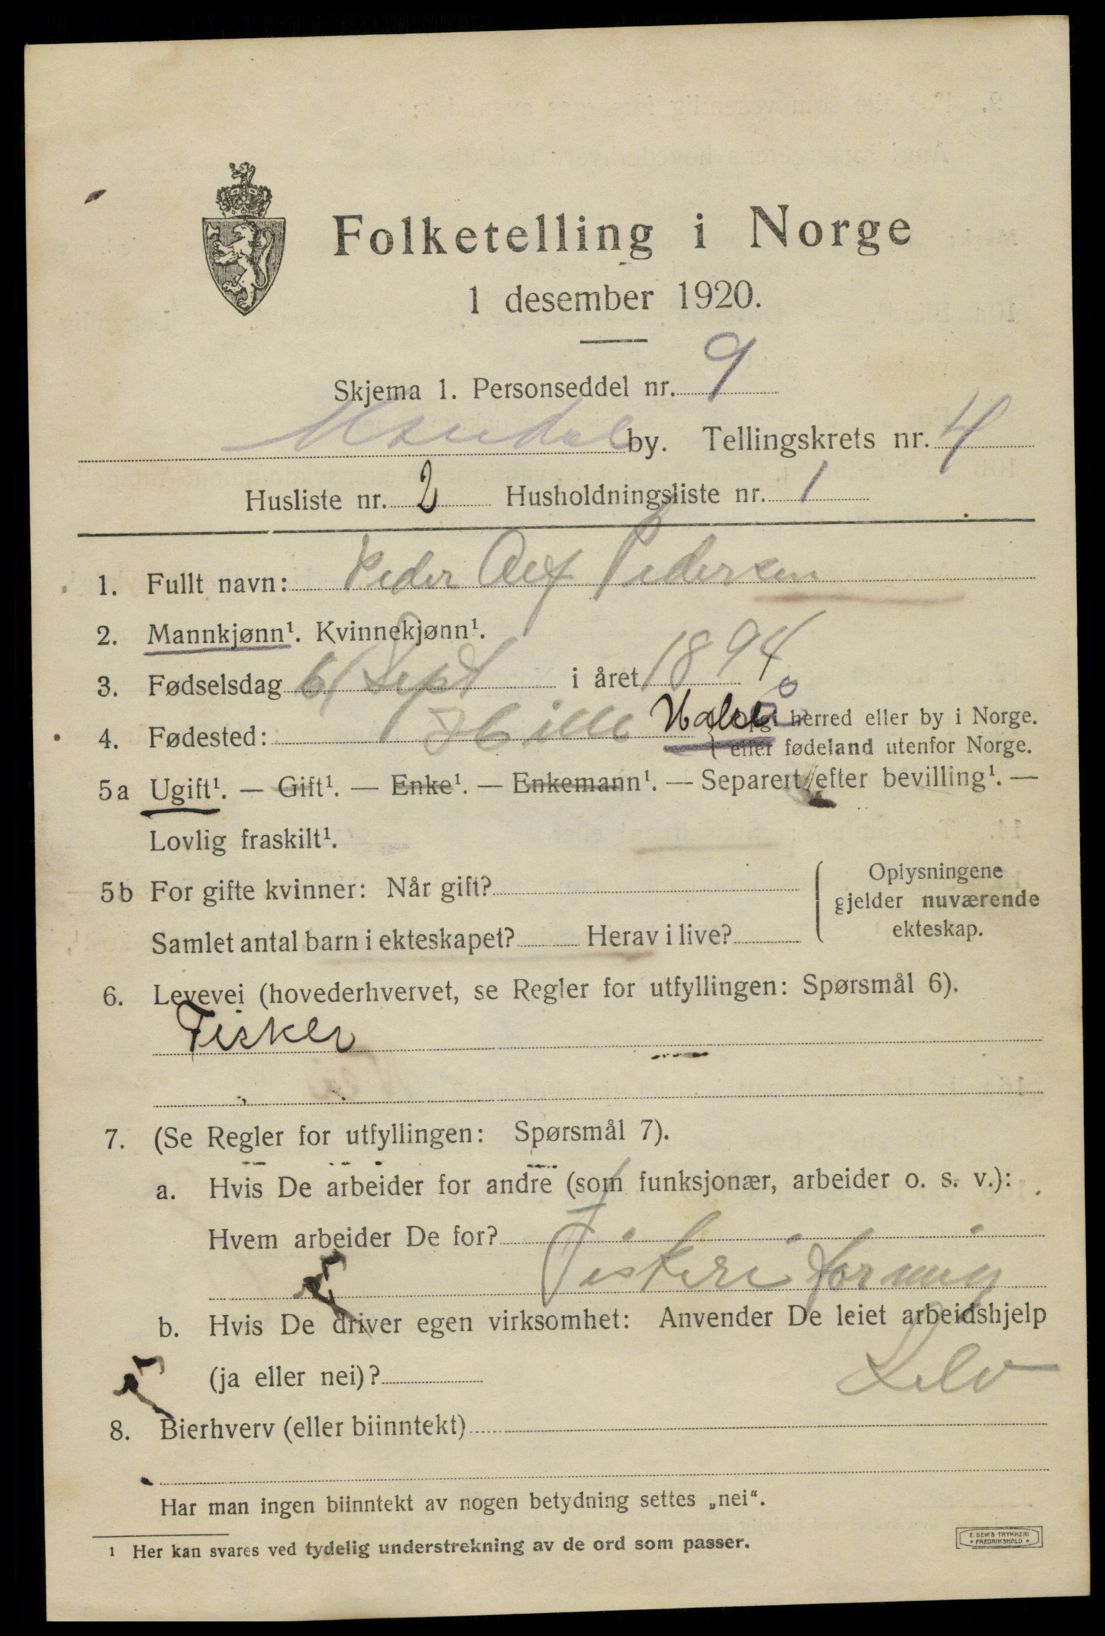 Folketelling i Norge
1 desember 1920.
Skjema 1. Personseddel nr. 9
Mandal by. Tellingskrets nr. 4
Husliste nr. 2 Husholdningsliste nr. 1
1. Fullt navn: Peder Alf Pedersen
2. Mannkjønn¹. Kvinnekjønn¹.
3. Fødselsdag 6/ Sept i året 1894
4. Fødested: Hille Halse herred eller by i Norge.
eller fødeland utenfor Norge.
5a Ugift¹. — Gift¹. — Enke¹. — Enkemann¹. — Separert efter bevilling¹. —
Lovlig fraskilt¹.
5b For gifte kvinner: Når gift?
Samlet antal barn i ekteskapet? Herav i live?
Oplysningene
gjelder nuværende
ekteskap.
6. Levevei (hovederhvervet, se Regler for utfyllingen: Spørsmål 6).
Fisker
7. (Se Regler for utfyllingen: Spørsmål 7).
a. Hvis De arbeider for andre (som funksjonær, arbeider o. s. v.):
Hvem arbeider De for?
Fiskeri for mig
b. Hvis De driver egen virksomhet: Anvender De leiet arbeidshjelp
(ja eller nei)? selv
8. Bierhverv (eller biinntekt)
Har man ingen biinntekt av nogen betydning settes „nei“.
¹ Her kan svares ved tydelig understrekning av de ord som passer.
E. SEM'S TRYKKERI
• FREDRIKSHALD •